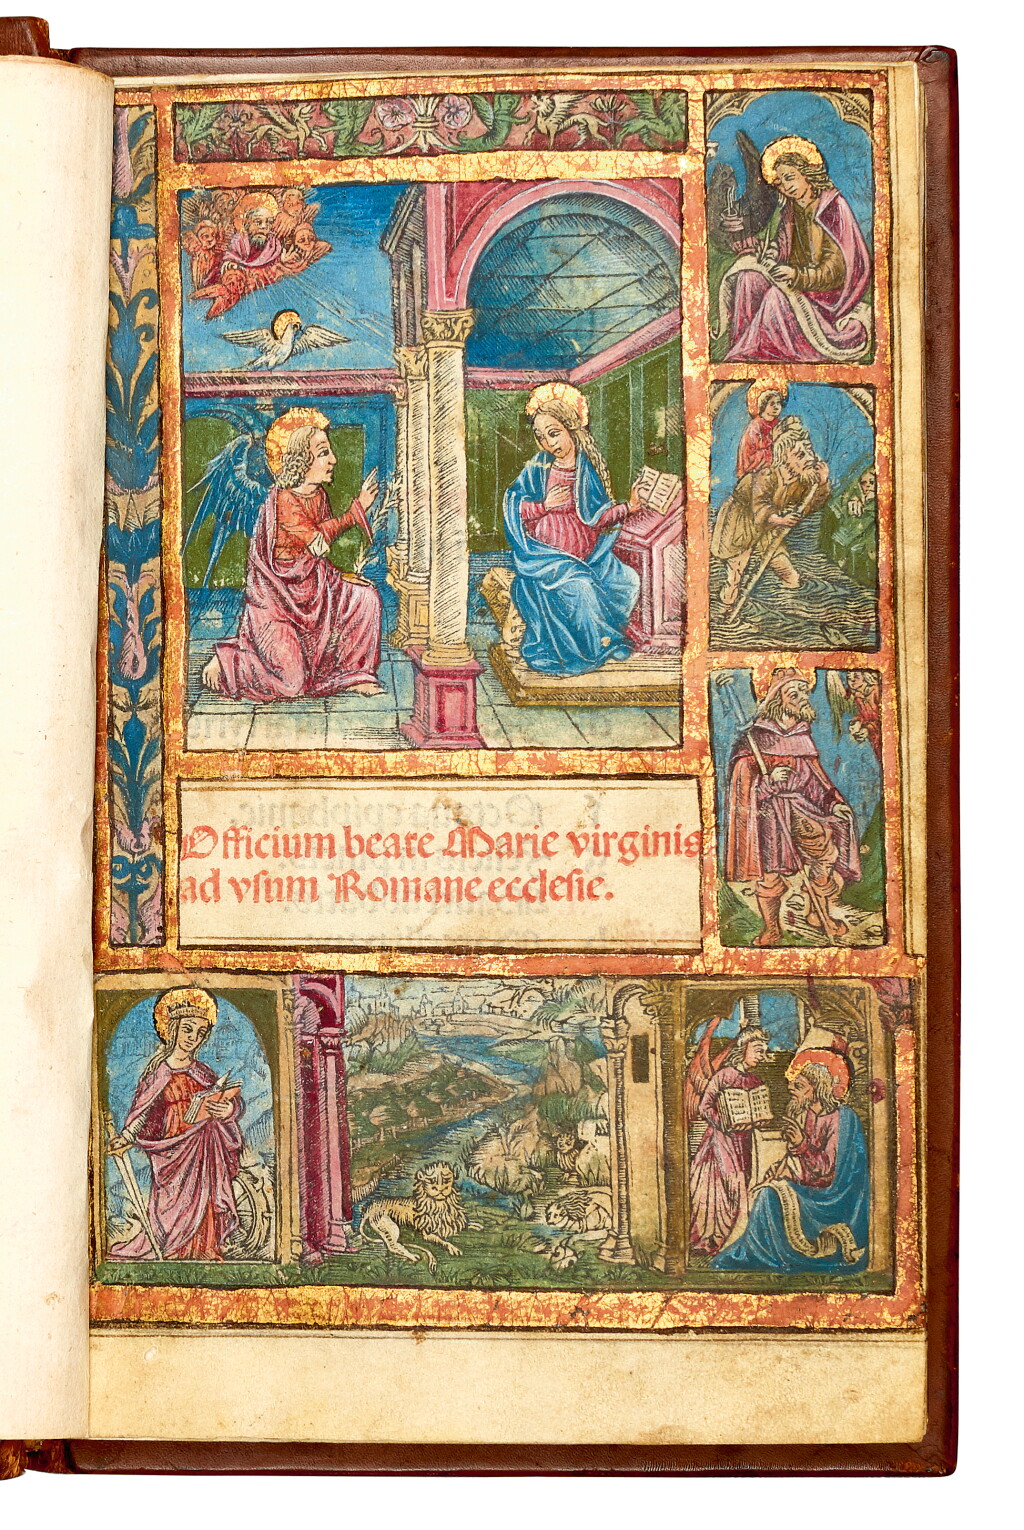 Officium beate Marie virginis
ad vsum Romane ecclesie.